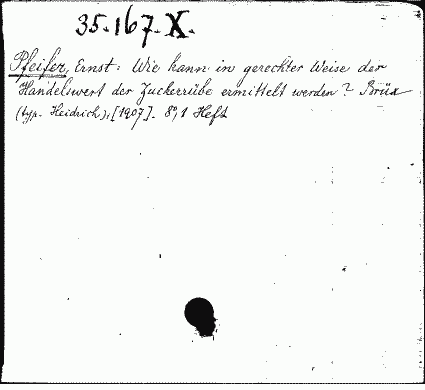 35.167.X.
Pfeifer, Ernst: Wie kann in gerechter Weise der
Handelswert der Zuckerrübe ermittelt werden? Brüx
(typ. Heidrich), [1907]. 8°, 1 Heft